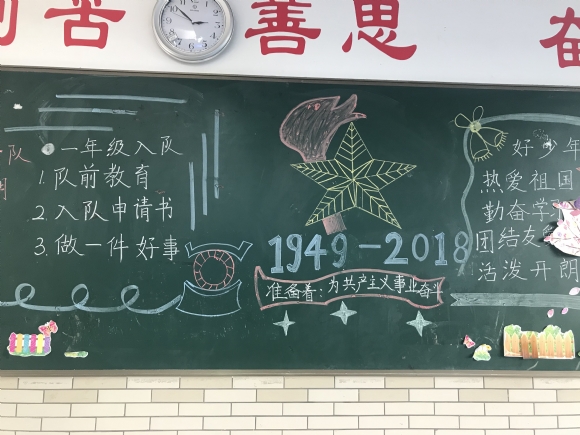 苦
善思
奋
队
一年级入队
1.队前教育
2.入队申请书
3.做一件好事
1949-2018
准备着:为共产主义事业奋斗
好少年
热爱祖国
勤奋学
团结友
活泼开朗